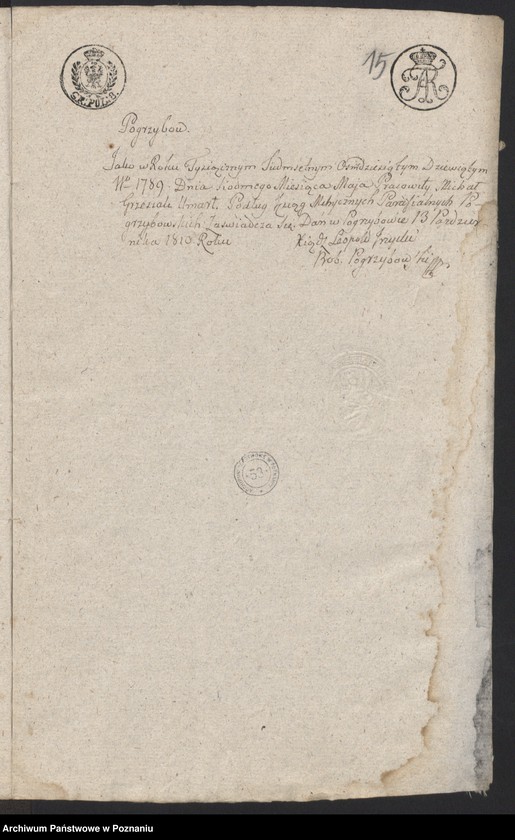 15
GR. POL: 8.
Pogrzybow.
Jako w Roku Tysiącznym Siudmsetnym Osmdziesiątym Dziewiątym
Nro 1789 Dnia Siodmego Miesiąca Maja Pracowity Michał
Umarł. Podług Xiąg Metrycznych Parafialnych Po
grzybowskich Zaświadcza Się. Dań w Pogrzybowie 13 Pazdzier
nika 1810 Roku Xiądz Leopold
Prob. Pogrzybowski
Archiwum Państwowe w Poznaniu